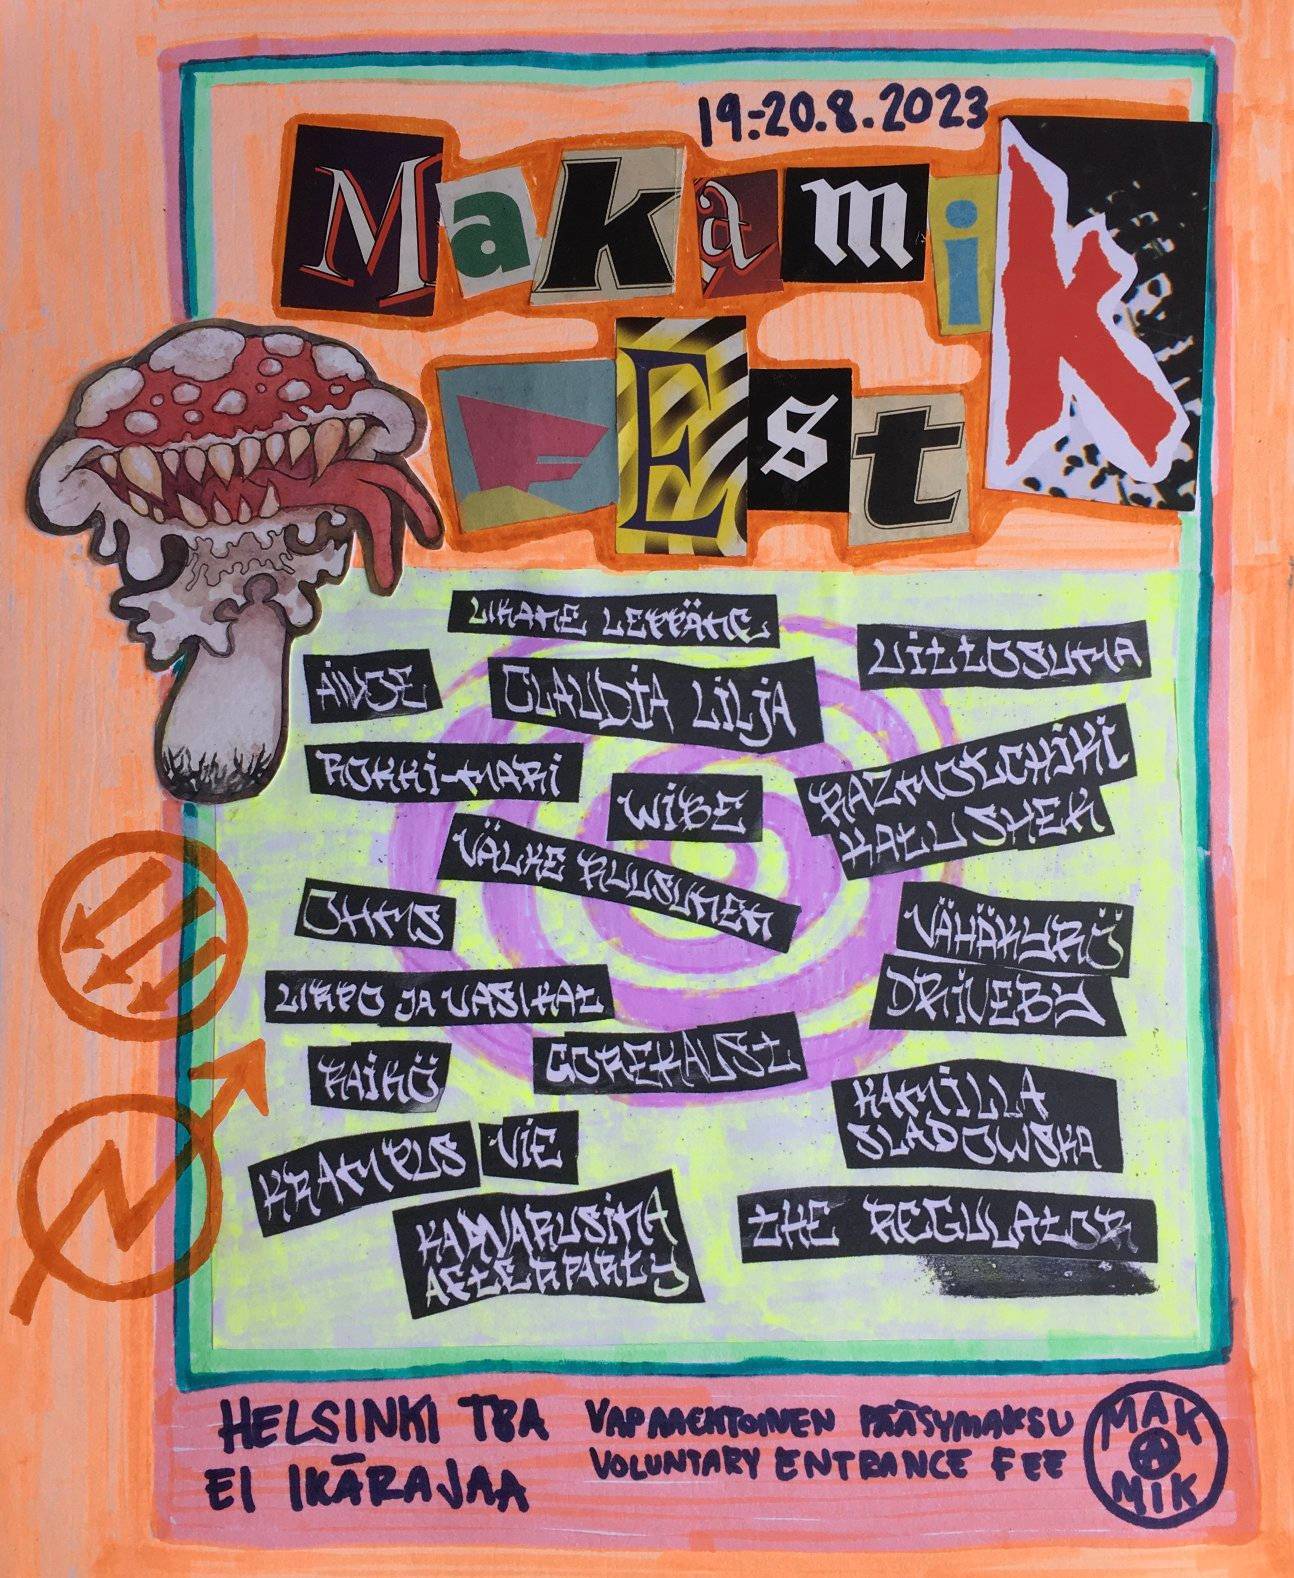 19.-20.8.2023
Makamik
FEst
LIKANE LEPPÄNE
UITTOSUMA
AINOE
CLAUDIA LILJA
ROKKI-MARI
WIBE
RAZMOTCHIKI
KATUSHEK
VÄLKE RUUSUNEN
OHMS
VÄHÄKYRÖ
DRIVEBY
LIRPO JA VASIKAT
RAIKÖ
GOREKAUST
KAMILLA
SLADOWSKA
KRAMPUS
VIE
THE REGULATOR
AFTERPARTY
HELSINKI TBA
EI IKÄRAJAA
VAPAAEHTOINEN PÄÄSYMAKSU
VOLUNTARY ENTRANCE FEE
MAK
A
MIK